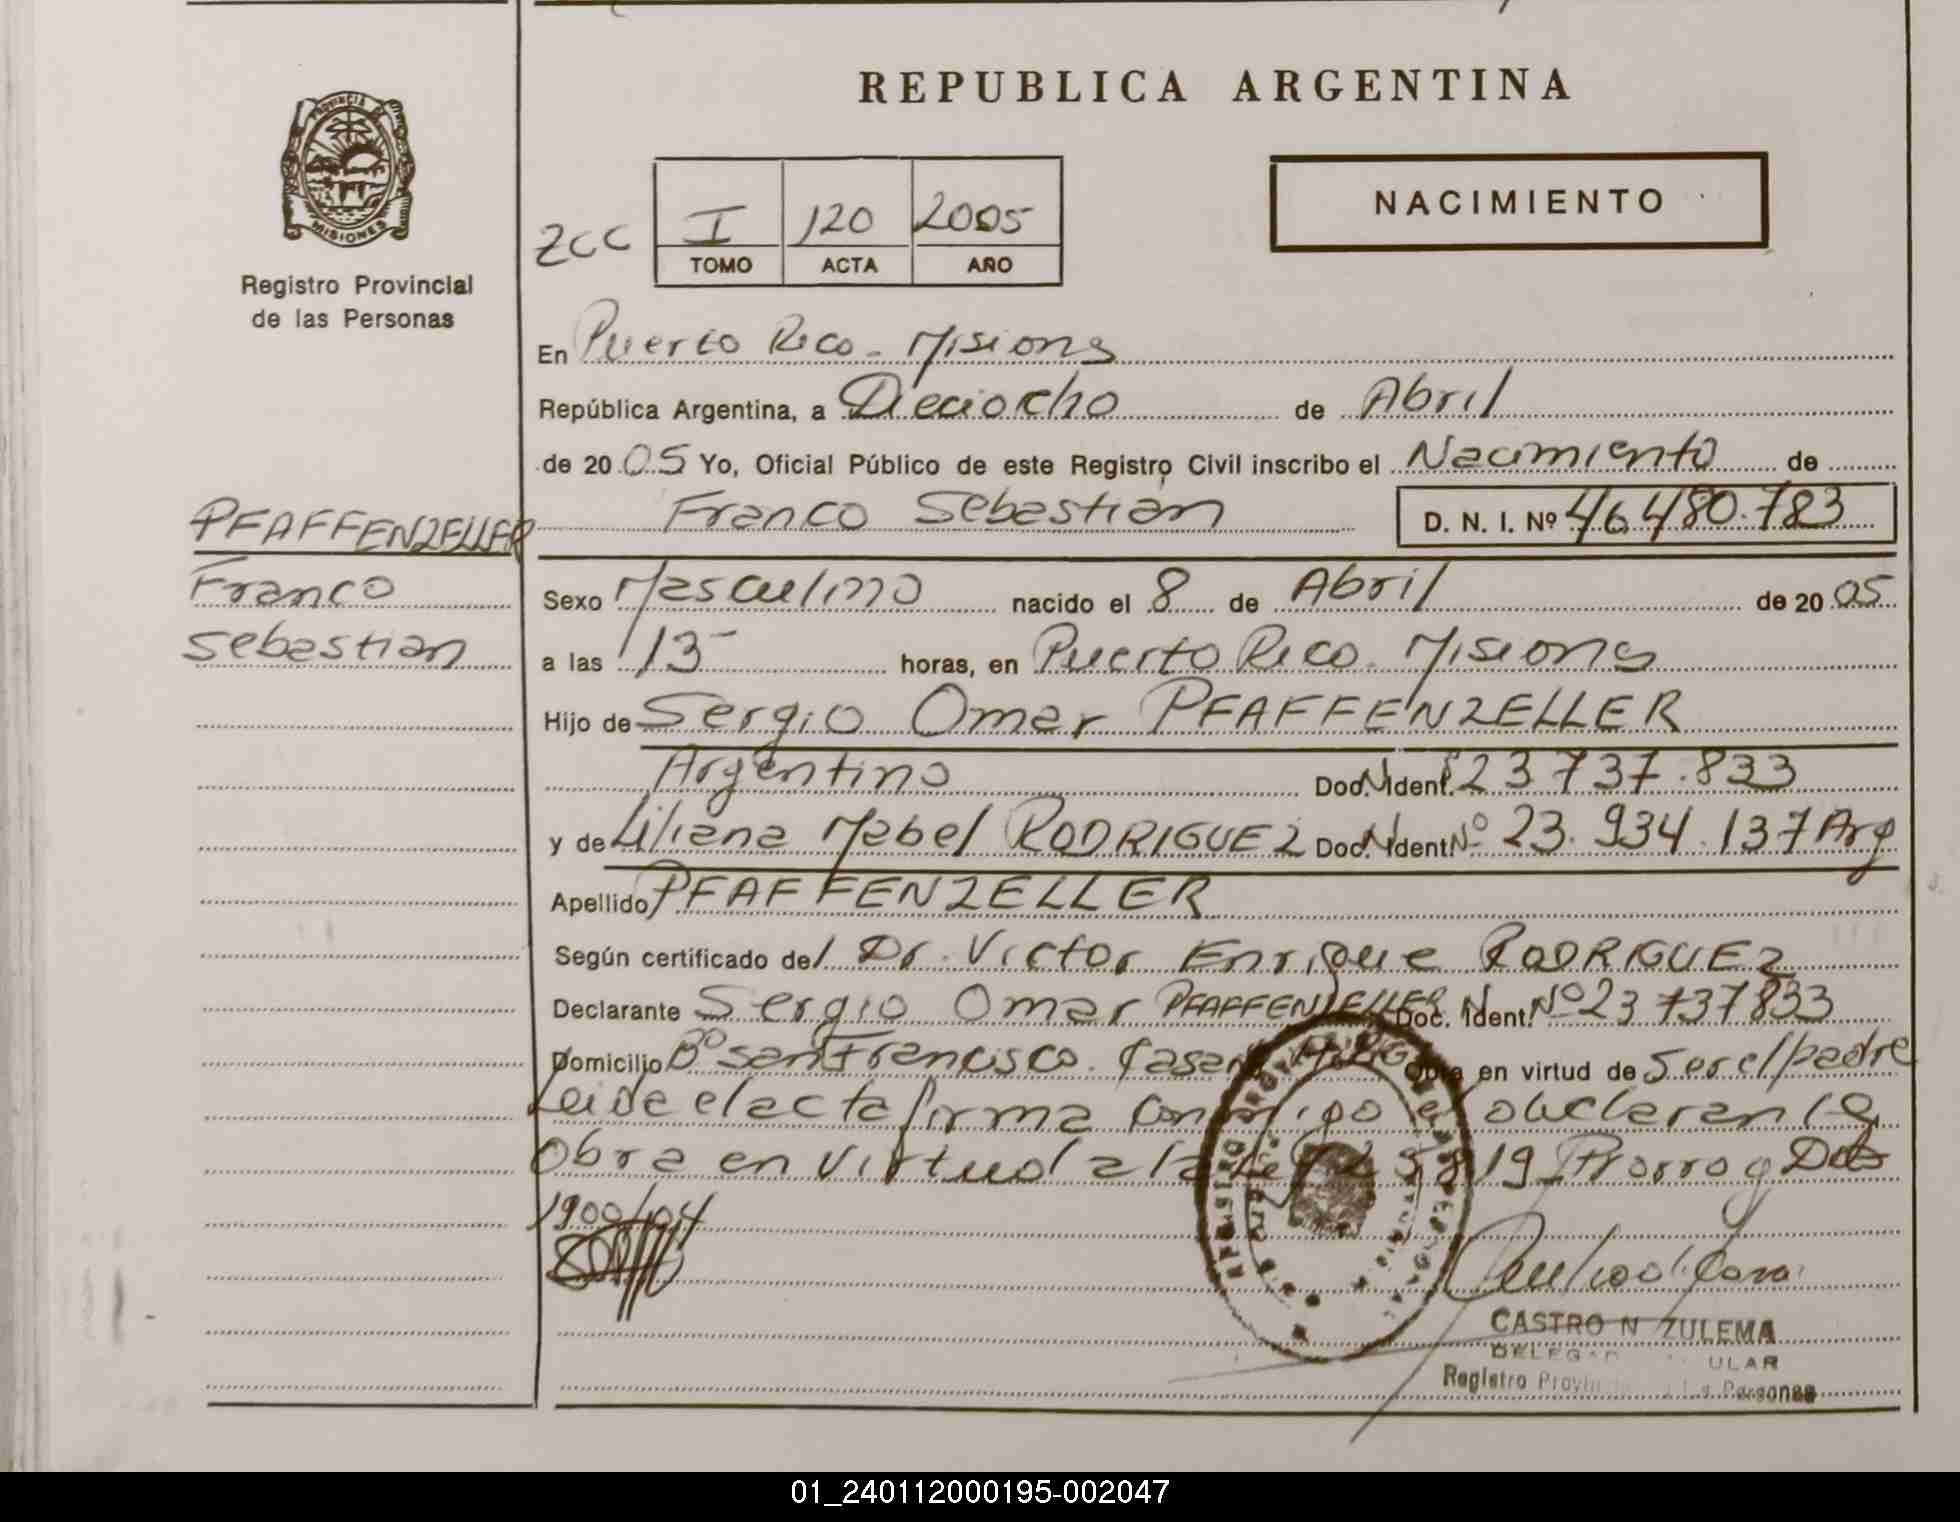 REPUBLICA ARGENTINA
PROVINCIA DE
MISIONES
Registro Provincial
de las Personas
NACIMIENTO
ZCC I 120 2005
TOMO ACTA AÑO
En Puerto Rico - Misiones
República Argentina, a Dieciocho de Abril
de 20 05 Yo, Oficial Público de este Registro Civil inscribo el Nacimiento de
PFAFFENZELLER
Franco Sebastian D. N. I. Nº 46.480.783
Franco
Sebastian
Sexo Masculino nacido el 8 de Abril de 20 05
a las 13 horas, en Puerto Rico. Misiones
Hijo de Sergio Omar PFAFFENZELLER
Argentino Doc. Ident. Nº 23 737.833
y de Liliana Mabel RODRIGUEZ Doc. Ident. Nº 23.934.137 Arg
Apellido PFAFFENZELLER
Según certificado del Dr. Victor Enrique RODRIGUEZ
Declarante Sergio Omar PFAFFENZELLER Doc. Ident. Nº 23 737833
Domicilio Bº San Francisco. Casa Obra en virtud de Ser el padre
Leida el acta firma conmigo el declarante
Obra en virtud a la Ley 25819 Prorrog Dto
1900/04
CASTRO N ZULEMA
Registro Personas
01_240112000195-002047